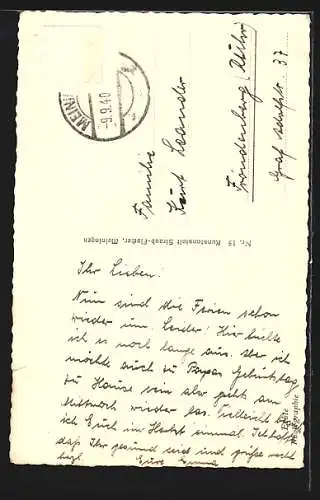 MEININ
-9.9.40
Familie
Kurt Leander
Fröndenberg (Ruhr)
Graf Adolfstr. 37
Nr. 15 Kunstanstalt Straub-Fischer, Meiningen
Echte
Photographie
Ihr Lieben!
Nun sind die Ferien schon
wieder um. Leider! Hier hielte
ich es noch lange aus. Aber ich
möchte auch zu Papas Geburtstag
zu Hause sein also geht es am
Mittwoch wieder los. Vielleicht be
ich Euch im Herbst einmal. Ich hoffe
daß Ihr gesund seid und grüße recht
herzl. Eure Emma